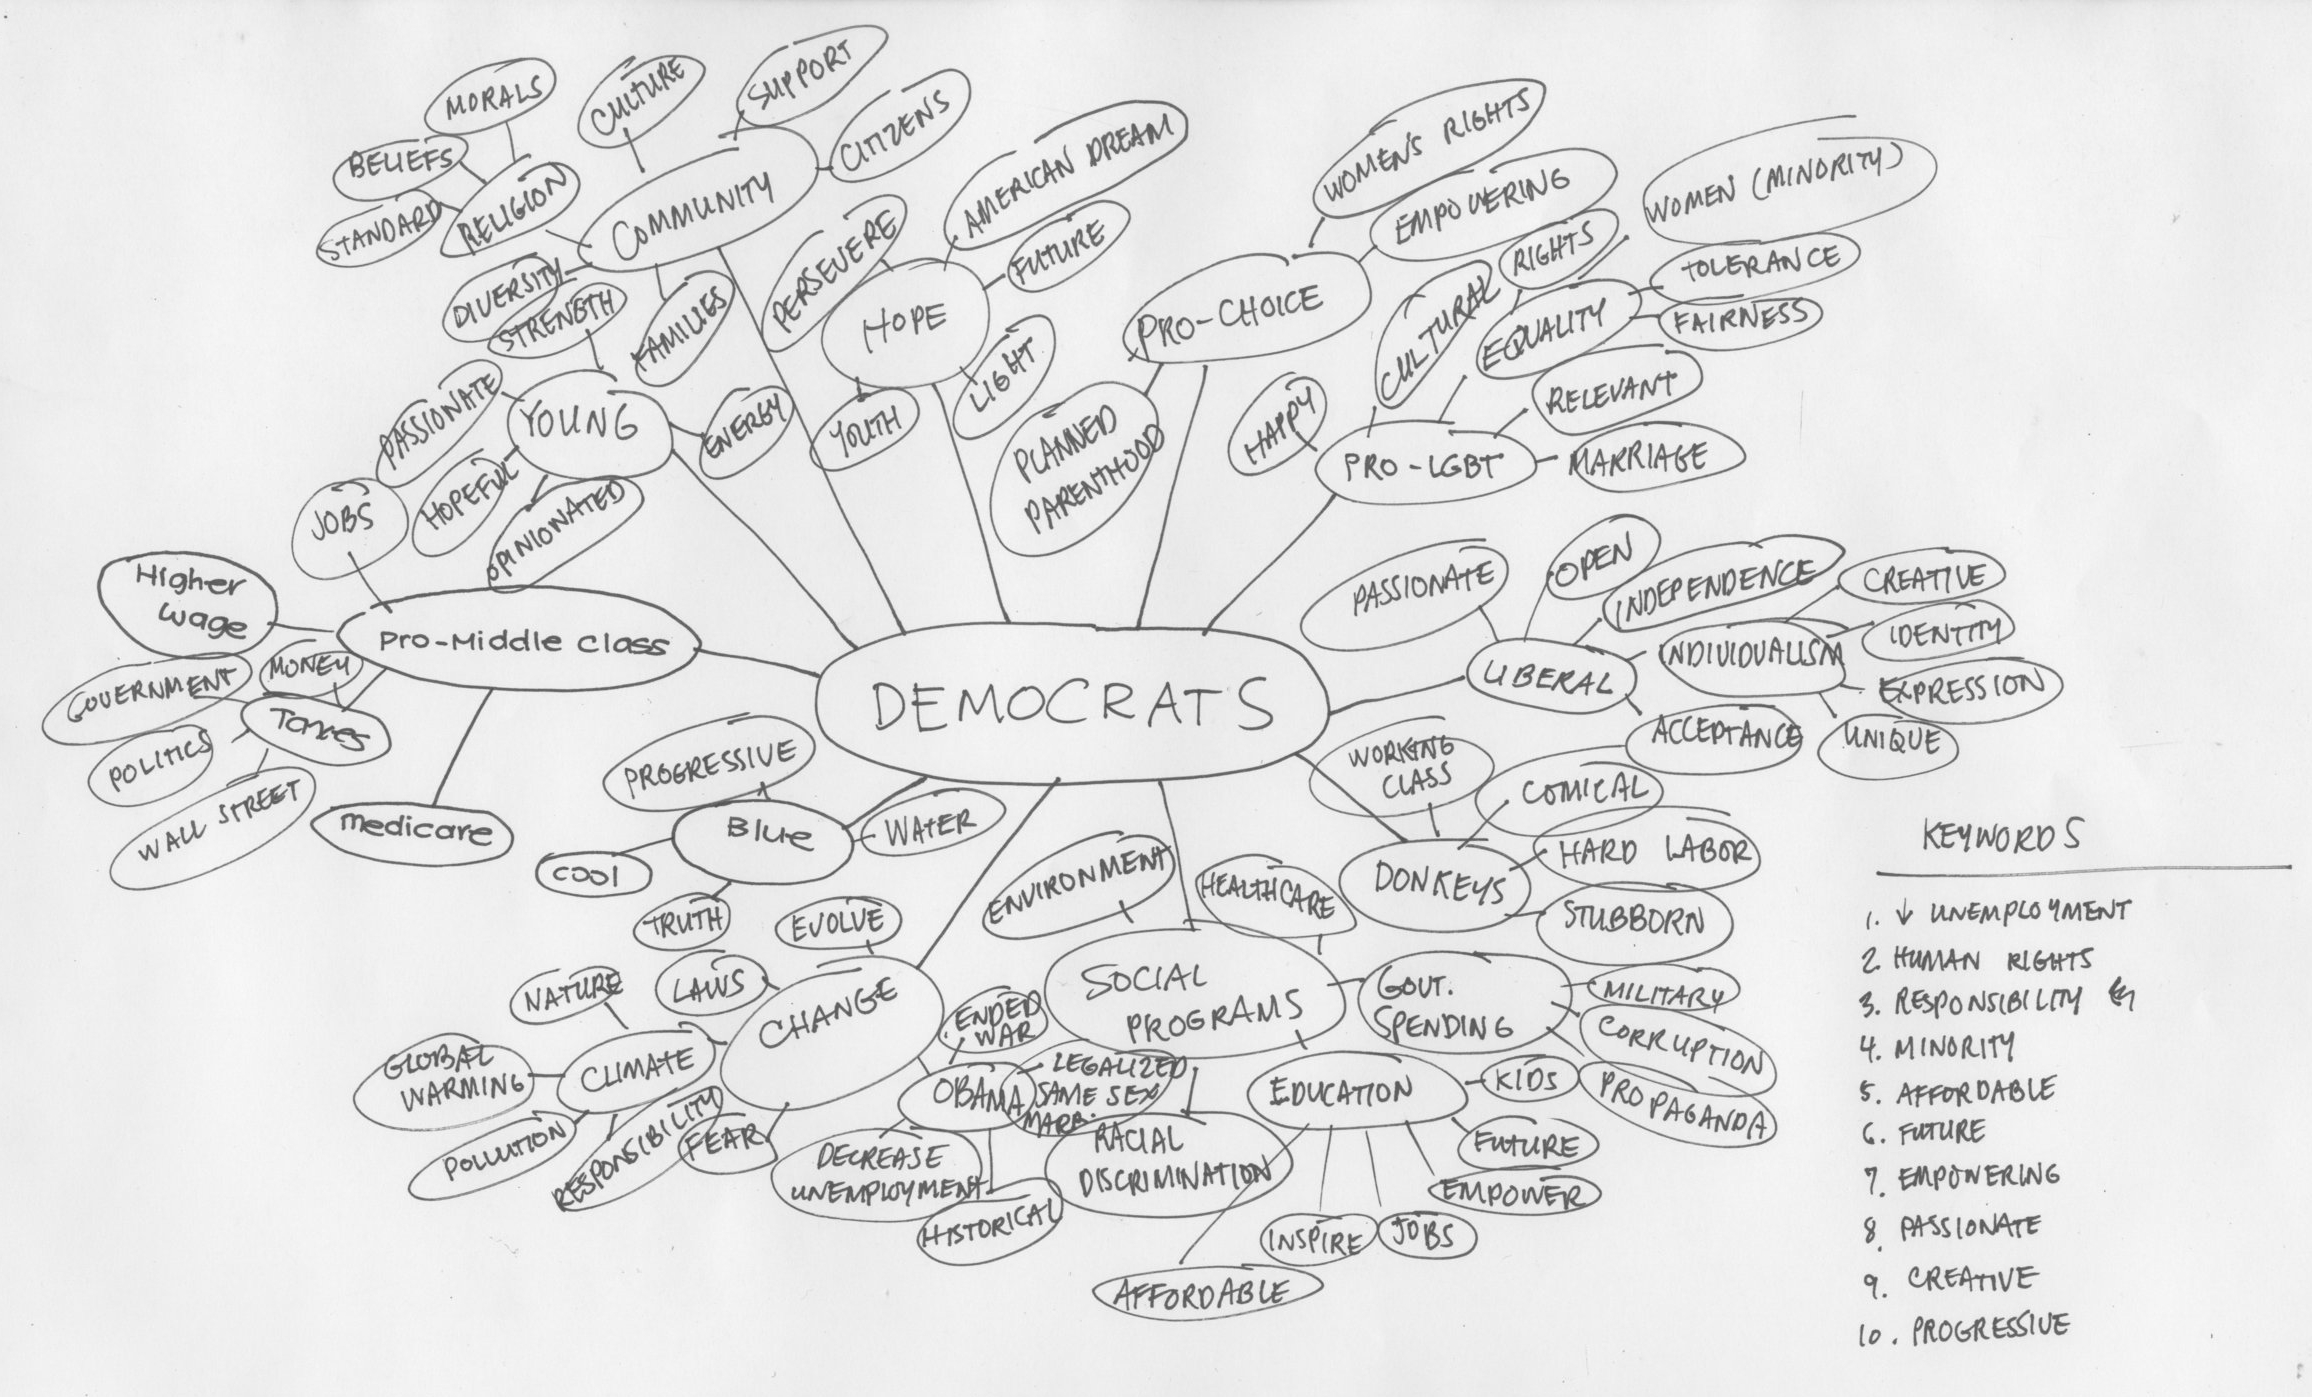 MORALS
CULTURE
SUPPORT
CITIZENS
BELIEFS
STANDARD
RELIGION
COMMUNITY
DIVERSITY
STRENGTH
FAMILIES
PERSEVERE
AMERICAN DREAM
FUTURE
HOPE
LIGHT
YOUTH
PASSIONATE
YOUNG
ENERGY
HOPEFUL
OPINIONATED
WOMEN'S RIGHTS
EMPOWERING
PRO-CHOICE
PLANNED
PARENTHOOD
WOMEN (MINORITY)
RIGHTS
CULTURAL
TOLERANCE
EQUALITY
FAIRNESS
HAPPY
RELEVANT
PRO-LGBT
MARRIAGE
JOBS
Higher
wage
Pro-Middle Class
GOVERNMENT
MONEY
Taxes
POLITICS
WALL STREET
medicare
DEMOCRATS
PASSIONATE
OPEN
INDEPENDENCE
CREATIVE
LIBERAL
INDIVIDUALISM
IDENTITY
EXPRESSION
ACCEPTANCE
UNIQUE
PROGRESSIVE
Blue
WATER
COOl
TRUTH
WORKING
CLASS
COMICAL
HARD LABOR
DONKEYS
STUBBORN
EVOLVE
LAWS
NATURE
CHANGE
GLOBAL
WARMING
CLIMATE
POLLUTION
RESPONSIBILITY
FEAR
ENDED
WAR
OBAMA
LEGALIZED
SAME SEX
MARR.
DECREASE
UNEMPLOYMENT
HISTORICAL
ENVIRONMENT
HEALTHCARE
SOCIAL
PROGRAMS
GOVT.
SPENDING
MILITARY
CORRUPTION
PROPAGANDA
RACIAL
DISCRIMINATION
EDUCATION
KIDS
FUTURE
EMPOWER
INSPIRE
JOBS
AFFORDABLE
KEYWORDS
1. ↓ UNEMPLOYMENT
2. HUMAN RIGHTS
3. RESPONSIBILITY
4. MINORITY
5. AFFORDABLE
6. FUTURE
7. EMPOWERING
8. PASSIONATE
9. CREATIVE
10. PROGRESSIVE